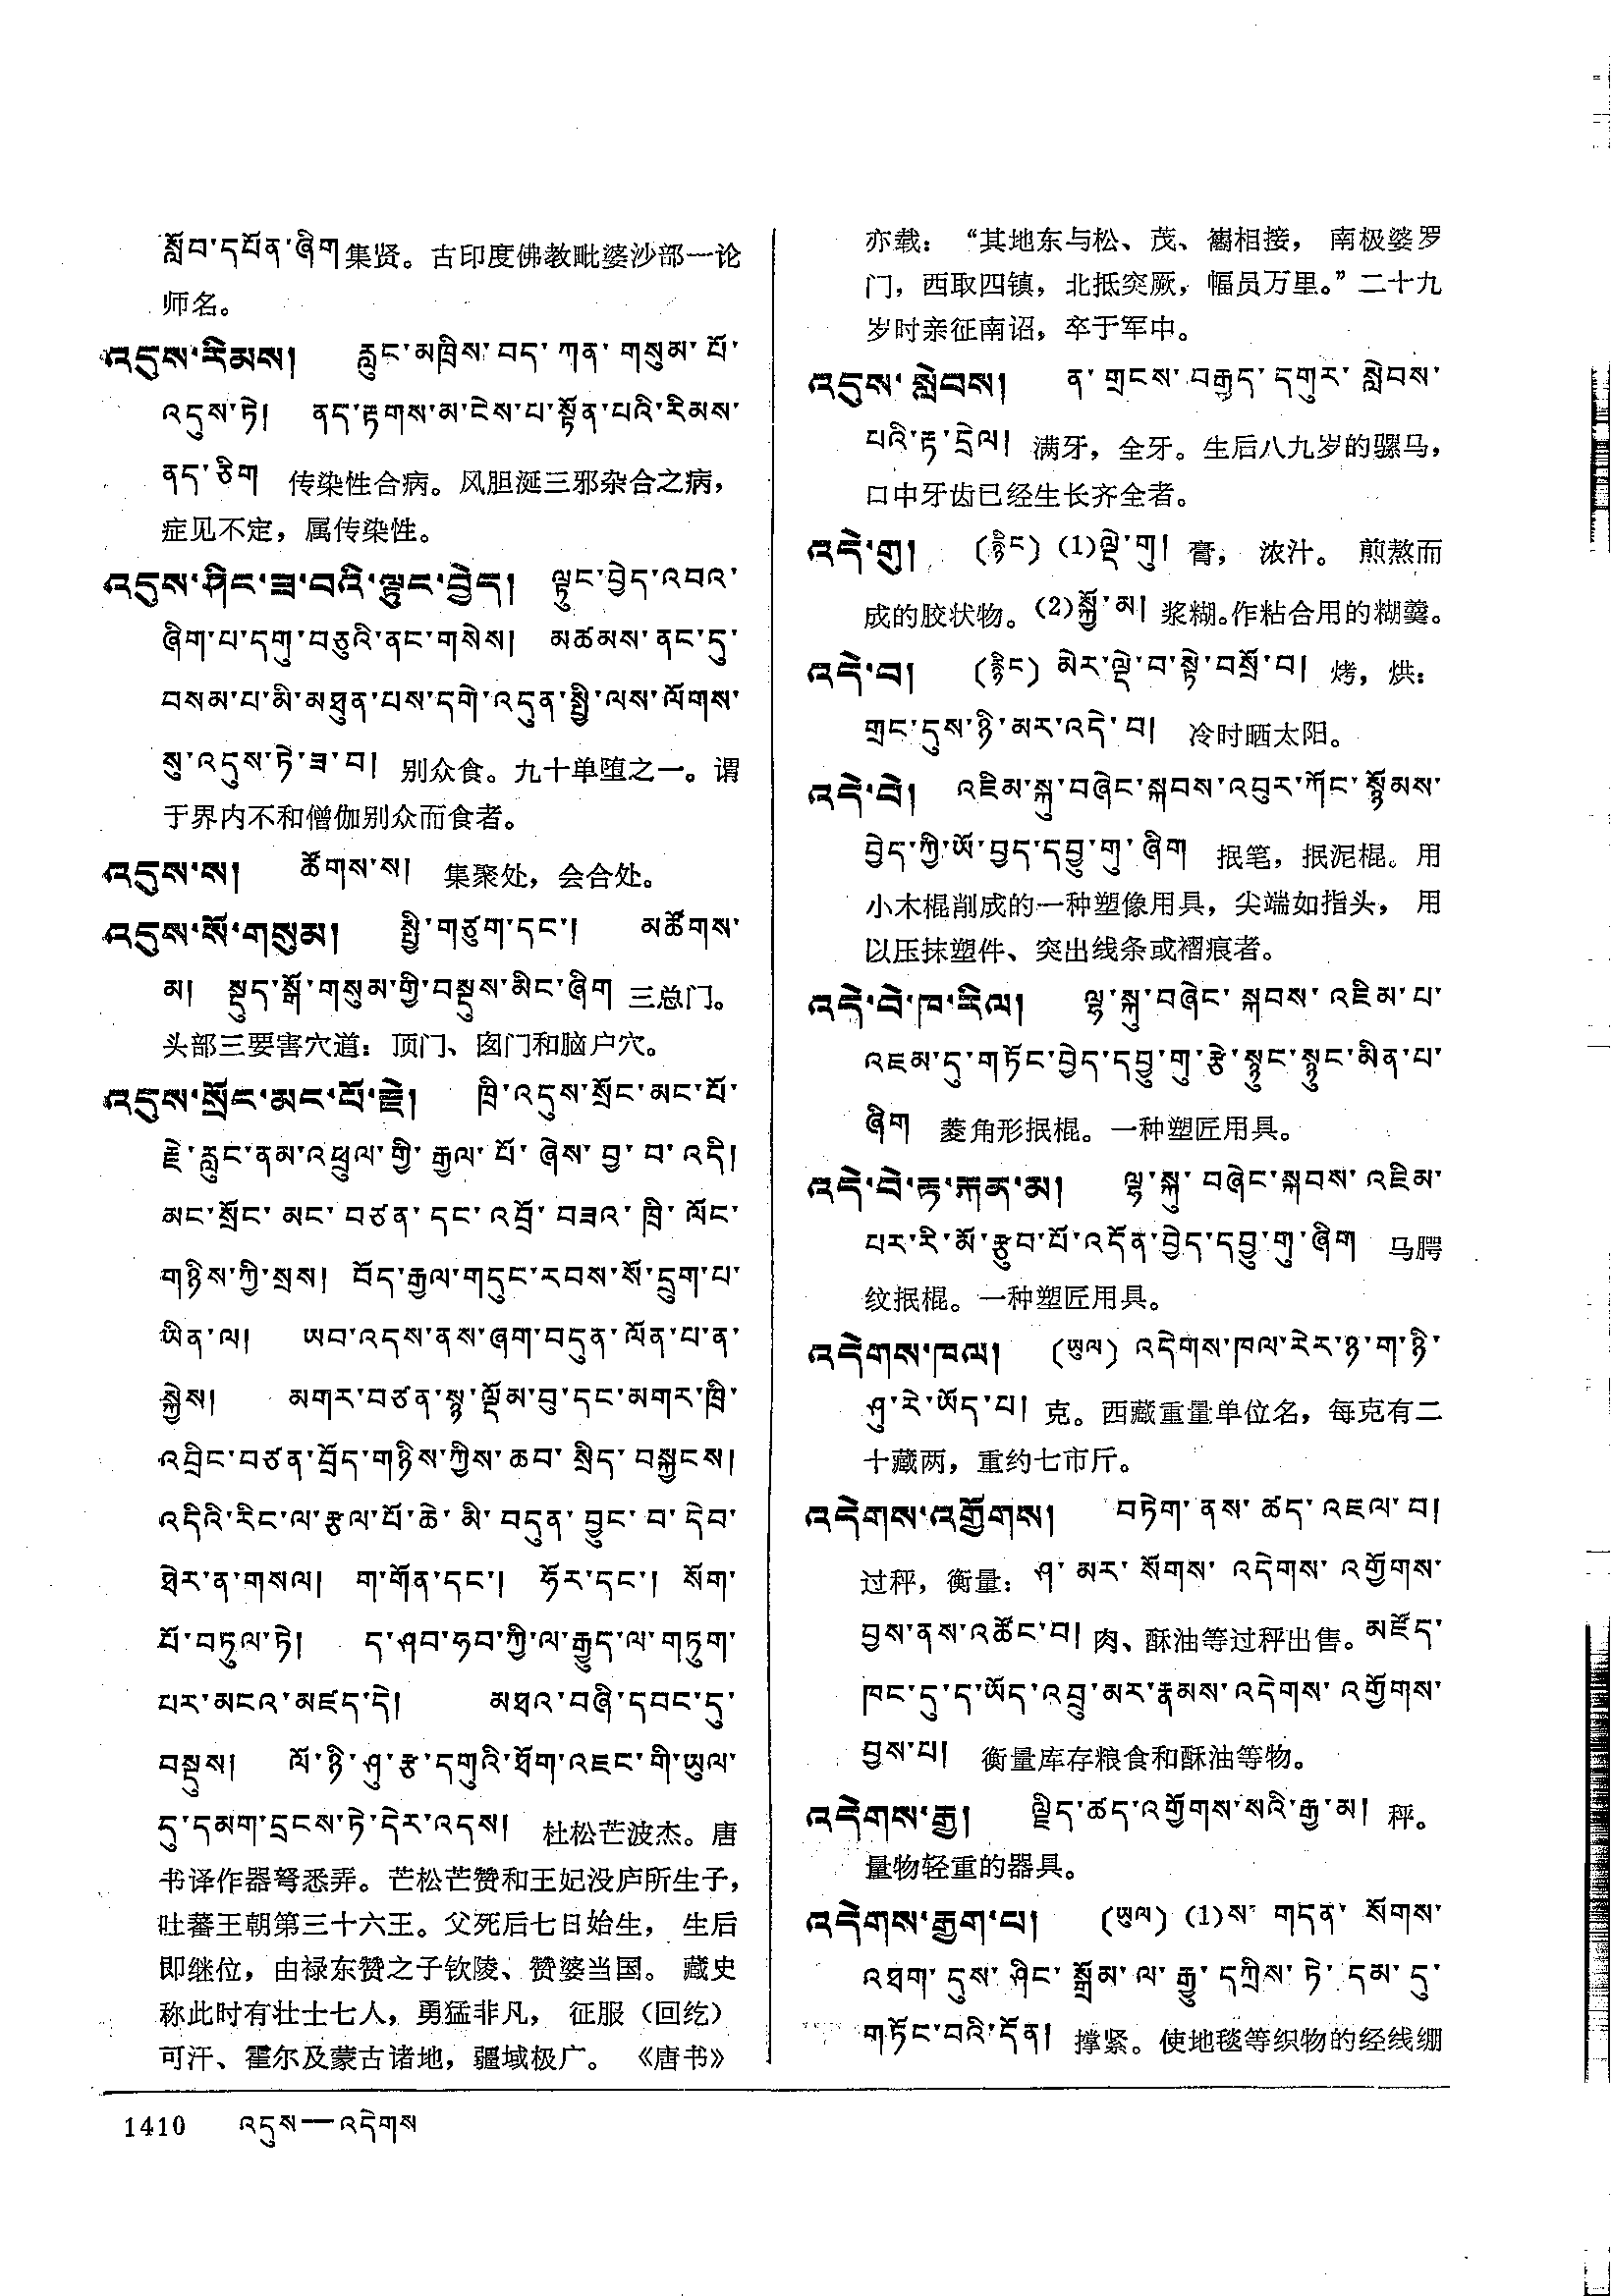 སློབ་དཔོན་ཞིག 集贤。古印度佛教毗婆沙部一论
师名。
འདུས་རིམས། རླུང་མཁྲིས་བད་ཀན་གསུམ་པོ་
འདུས་ཏེ། ནད་རྟགས་མ་ངེས་པ་སྟོན་པའི་རིམས་
ནད་ཅིག 传染性合病。风胆涎三邪杂合之病，
症见不定，属传染性。
འདུས་ཤིང་ཟ་བའི་ལྟུང་བྱེད། ལྟུང་བྱེད་འབའ་
ཞིག་པ་དགུ་བཅུའི་ནང་གསེས། མཚམས་ནང་དུ་
བསམ་པ་མི་མཐུན་པས་དགེ་འདུན་སྤྱི་ལས་ལོགས་
སུ་འདུས་ཏེ་ཟ་བ། 别众食。九十单堕之一。谓
于界内不和僧伽别众而食者。
འདུས་ས། ཚོགས་ས། 集聚处，会合处。
འདུས་སོ་གསུམ། སྤྱི་གཙུག་དང་། མཚོགས་
མ། སྡུད་སྒོ་གསུམ་གྱི་བསྡུས་མིང་ཞིག 三总门。
头部三要害穴道：顶门、囟门和脑户穴。
འདུས་སྲོང་མང་པོ་རྗེ། ཁྲི་འདུས་སྲོང་མང་པོ་
རྗེ་རླུང་ནམ་འཕྲུལ་གྱི་རྒྱལ་པོ་ཞེས་བྱ་བ་འདི།
མང་སྲོང་མང་བཙན་དང་འབྲོ་བཟའ་ཁྲི་ལོང་
གཉིས་ཀྱི་སྲས། བོད་རྒྱལ་གདུང་རབས་སོ་དྲུག་པ་
ཡིན་ལ། ཡབ་འདས་ནས་ཞག་བདུན་ལོན་པ་ན་
སྐྱེས། མགར་བཙན་སྙ་ལྡོམ་བུ་དང་མགར་ཁྲི་
འབྲིང་བཙན་བྲོད་གཉིས་ཀྱིས་ཆབ་སྲིད་བསྐྱངས།
འདིའི་རིང་ལ་རྩལ་པོ་ཆེ་མི་བདུན་བྱུང་བ་དེབ་
ཐེར་ན་གསལ། ག་གོན་དང་། ཧོར་དང་། སོག་
པོ་བཏུལ་ཏེ། ད་ཤབ་ཧབ་ཀྱི་ལ་རྒྱུད་ལ་གཏུག་
པར་མངའ་མཛད་དེ། མཐའ་བཞི་དབང་དུ་
བསྡུས། ལོ་ཉི་ཤུ་རྩ་དགུའི་ཐོག་འཇང་གི་ཡུལ་
དུ་དམག་དྲངས་ཏེ་དེར་འདས། 杜松芒波杰。唐
书译作器弩悉弄。芒松芒赞和王妃没庐所生子，
吐蕃王朝第三十六王。父死后七日始生， 生后
即继位，由禄东赞之子钦陵、赞婆当国。 藏史
称此时有壮士七人，勇猛非凡， 征服（回纥）
可汗、霍尔及蒙古诸地，疆域极广。 《唐书》
亦载： “其地东与松、茂、巂相接， 南极婆罗
门，西取四镇，北抵突厥，幅员万里。”二十九
岁时亲征南诏，卒于军中。
འདུས་སླེབས། ན་གྲངས་བརྒྱད་དགུར་སླེབས་
པའི་རྟ་དྲེལ། 满牙，全牙。生后八九岁的骡马，
口中牙齿已经生长齐全者。
འདེ་གུ། (རྙིང) (1)ལྡེ་གུ། 膏， 浓汁。 煎熬而
成的胶状物。(2)སྐྱོ་མ། 浆糊。作粘合用的糊羹。
འདེ་བ། (རྙིང) མེར་ལྡེ་བ་སྟེ་བསྲོ་བ། 烤，烘：
གྲང་དུས་ཉི་མར་འདེ་བ། 冷时晒太阳。
འདེ་བེ། འཇིམ་སྐུ་བཞེང་སྐབས་འབུར་ཀོང་སྙོམས་
བྱེད་ཀྱི་ཡོ་བྱད་དབྱུ་གུ་ཞིག 抿笔，抿泥棍。用
小木棍削成的一种塑像用具，尖端如指头， 用
以压抹塑件、突出线条或褶痕者。
འདེ་བེ་ཁ་རིལ། ལྷ་སྐུ་བཞེང་སྐབས་འཇིམ་པ་
འཇམ་དུ་གཏོང་བྱེད་དབྱུ་གུ་རྩེ་སྙུང་སྙུང་མིན་པ་
ཞིག 菱角形抿棍。一种塑匠用具。
འདེ་བེ་རྟ་རྐན་མ། ལྷ་སྐུ་བཞེང་སྐབས་འཇིམ་
པར་རི་མོ་རྩུབ་པོ་འདོན་བྱེད་དབྱུ་གུ་ཞིག 马腭
纹抿棍。一种塑匠用具。
འདེགས་ཁལ། (ཡུལ) འདེགས་ཁལ་རེར་ཉ་ག་ཉི་
ཤུ་རེ་ཡོད་པ། 克。西藏重量单位名，每克有二
十藏两，重约七市斤。
འདེགས་འགྱོགས། བཏེག་ནས་ཚད་འཇལ་བ།
过秤，衡量：ཤ་མར་སོགས་འདེགས་འགྱོགས་
བྱས་ནས་འཚོང་བ། 肉、酥油等过秤出售。མཛོད་
ཁང་དུ་ད་ཡོད་འབྲུ་མར་རྣམས་འདེགས་འགྱོགས་
བྱས་པ། 衡量库存粮食和酥油等物。
འདེགས་རྒྱ། ལྗིད་ཚད་འགྱོགས་སའི་རྒྱ་མ། 秤。
量物轻重的器具。
འདེགས་རྒྱག་པ། (ཡུལ) (1)ས་གདན་སོགས་
འཐག་དུས་ཤིང་སྒྲོམ་ལ་རྒྱུ་དཀྲིས་ཏེ་དམ་དུ་
གཏོང་བའི་དོན། 撑紧。使地毯等织物的经线绷
1410 འདུས—འདེགས